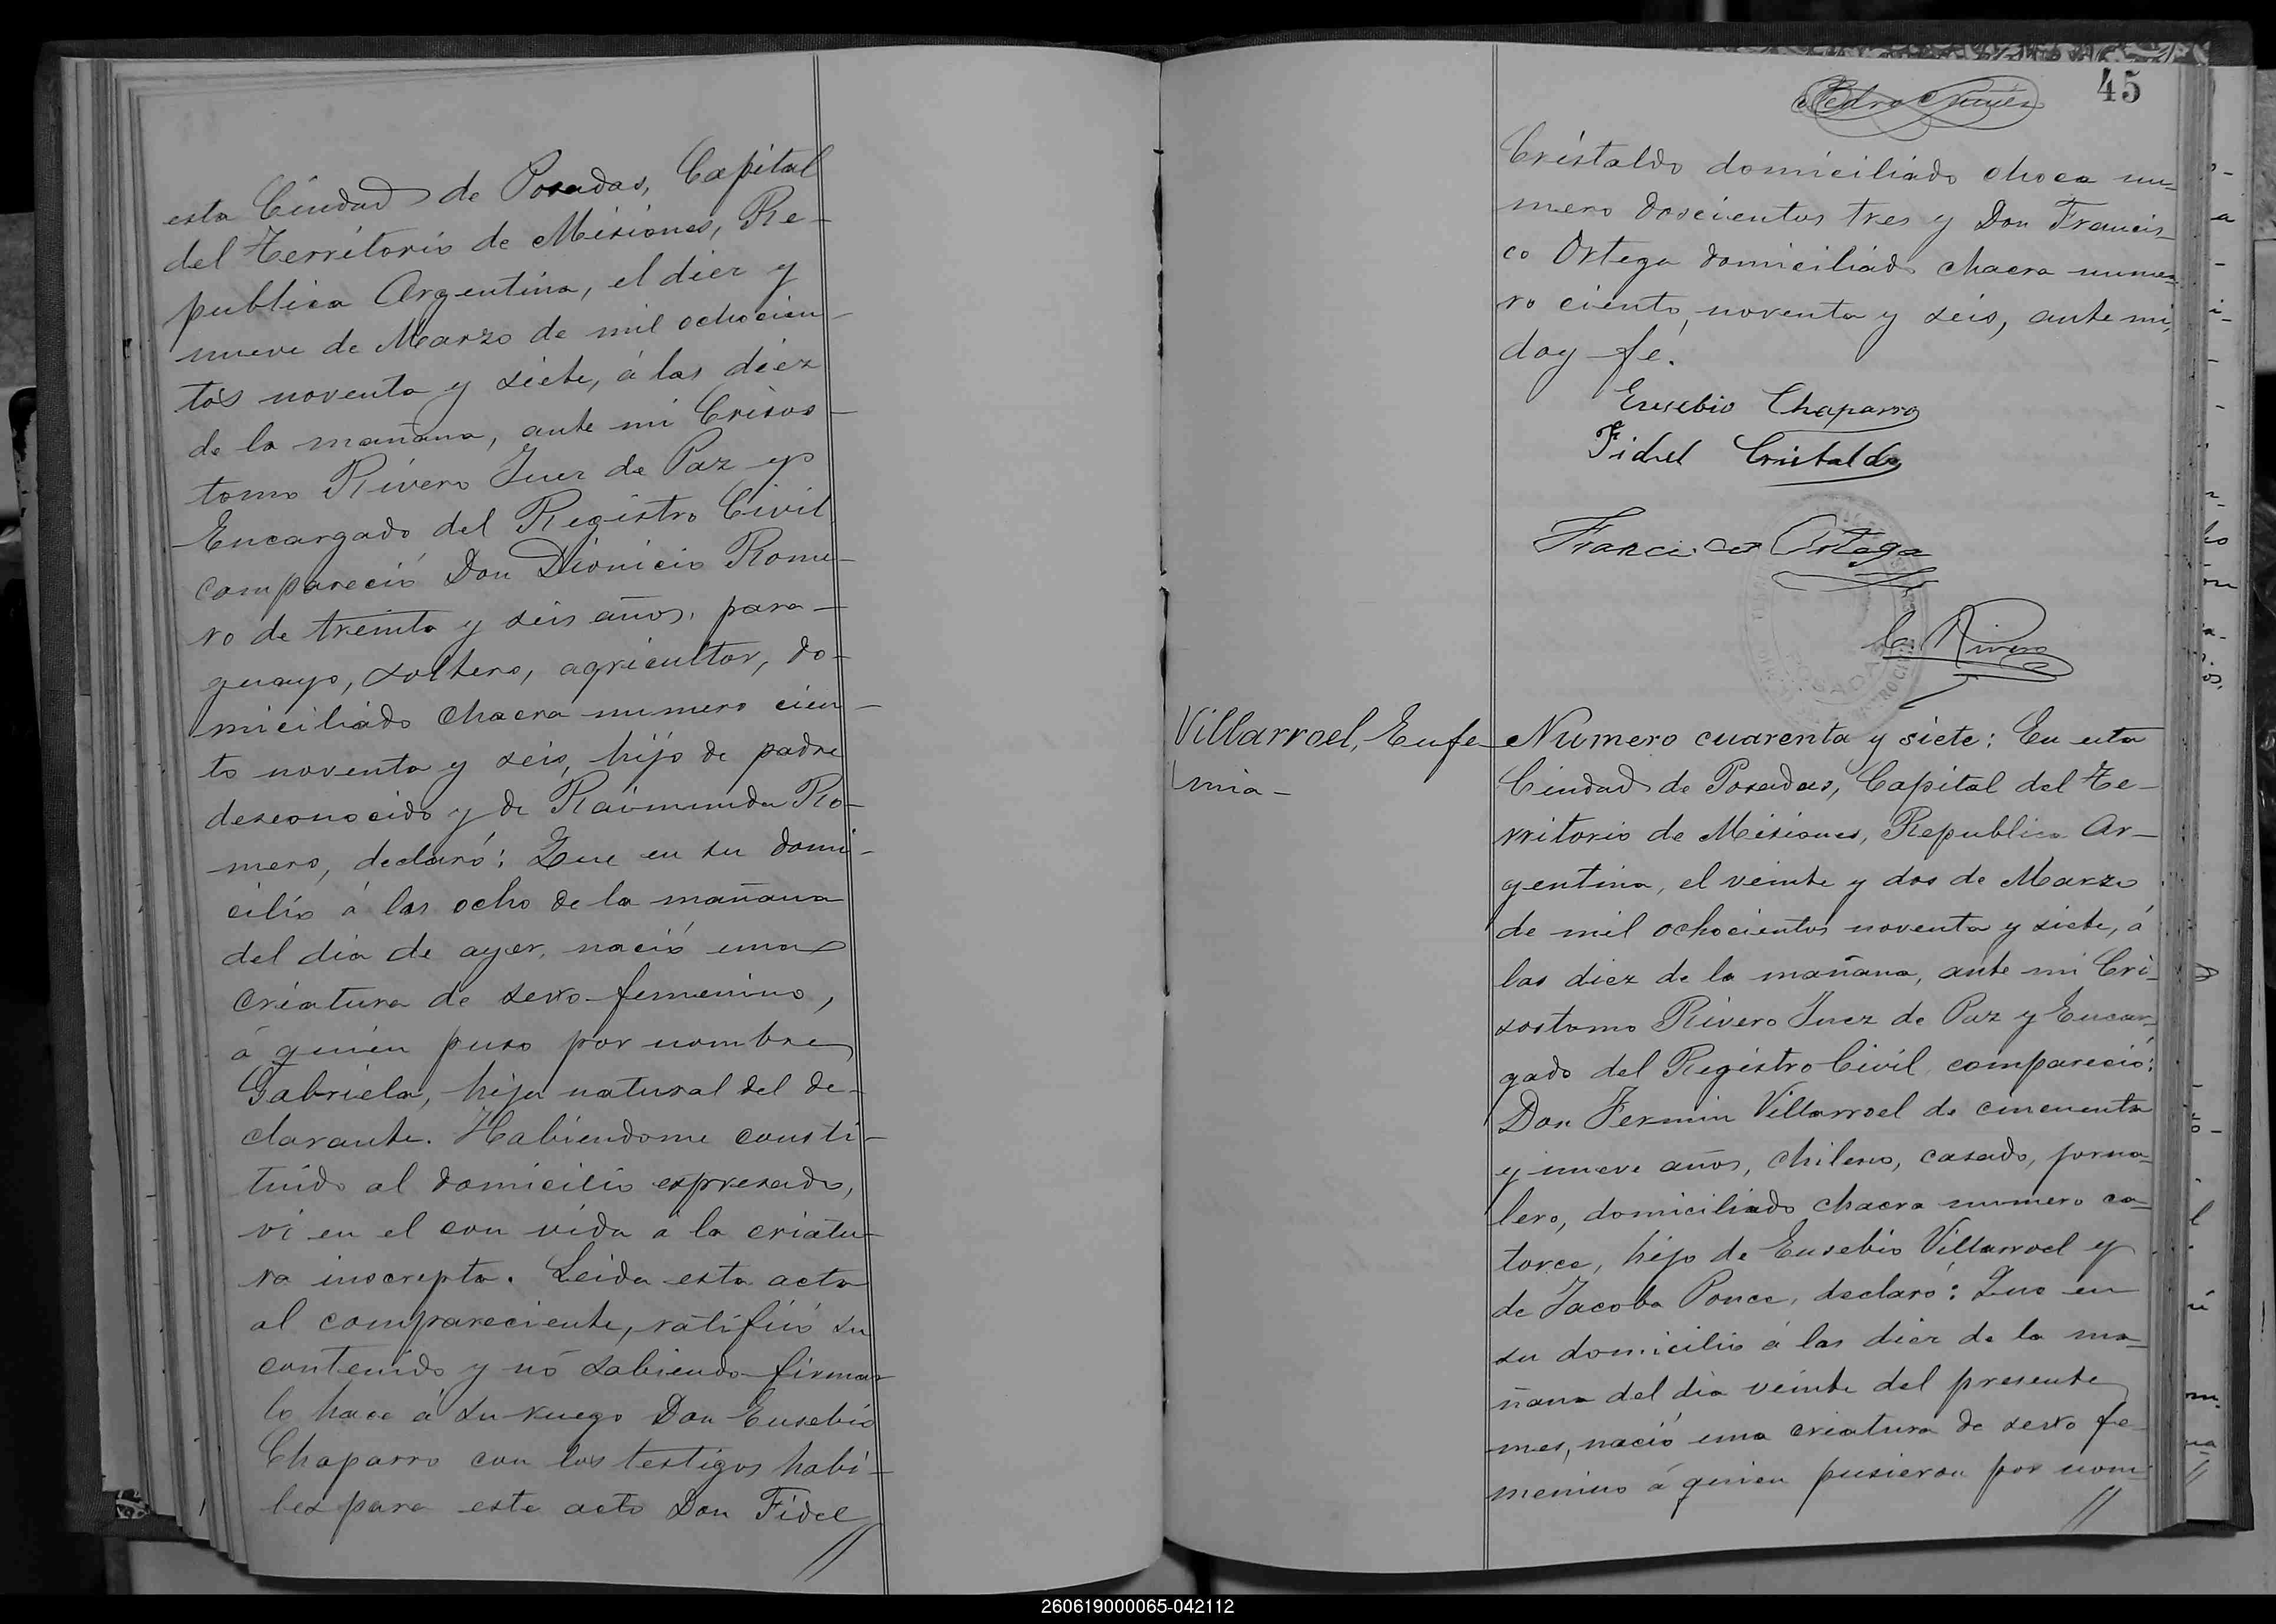 esta Ciudad de Posadas, Capital
del Territorio de Misiones, Re-
publica Argentina, el diez y
nueve de Marzo de mil ochocien-
tos noventa y siete, á las diez
de la mañana, ante mi Crisos-
tomo Rivero Juez de Paz y
Encargado del Registro Civil
compareció Don Dionicio Rome-
ro de treinta y seis años, para-
guayo, soltero, agricultor, do-
miciliado chacra numero cien-
to noventa y seis, hijo de padre
desconocido y de Raimunda Ro-
mero, declaró: Que en su domi-
cilio á las ocho de la mañana
del dia de ayer, nació una
criatura de sexo femenino,
á quien puso por nombre
Gabriela, hija natural del de-
clarante. Habiendome consti-
tuido al domicilio expresado,
vi en el con vida a la criatu-
ra inscripta. Leida esta acta
al compareciente, ratificó su
contenido y nó sabiendo firmar
lo hace á su ruego Don Eusebio
Chaparro con los testigos habi-
les para este acto Don Fidel
//
45
Pedro Nuñez
Cristaldo domiciliado chaca nu-
mero doscientos tres y Don Francis-
co Ortega domiciliado chacra nume-
ro ciento, noventa y seis, ante mi,
doy fé.
Eusebio Chaparro
Fidel Cristaldo
Francisco Ortega
C. Rivero
Villarroel, Eufe
mia-
Numero cuarenta y siete: En esta
Ciudad de Posadas, Capital del Te-
rritorio de Misiones, Republica Ar-
gentina, el veinte y dos de Marzo
de mil ochocientos noventa y siete, á
las diez de la mañana, ante mi Cri-
sostomo Rivero Juez de Paz y Encar-
gado del Registro Civil compareció:
Don Fermin Villarroel de cincuenta
y nueve años, chileno, casado, jorna-
lero, domiciliado chacra numero ca-
torce, hijo de Eusebio Villarroel y
de Jacoba Ponce, declaró: Que en
su domicilio á las diez de la ma-
ñana del dia veinte del presente
mes, nació una criatura de sexo fe-
menino á quien pusieron por nom
//
260619000065-042112